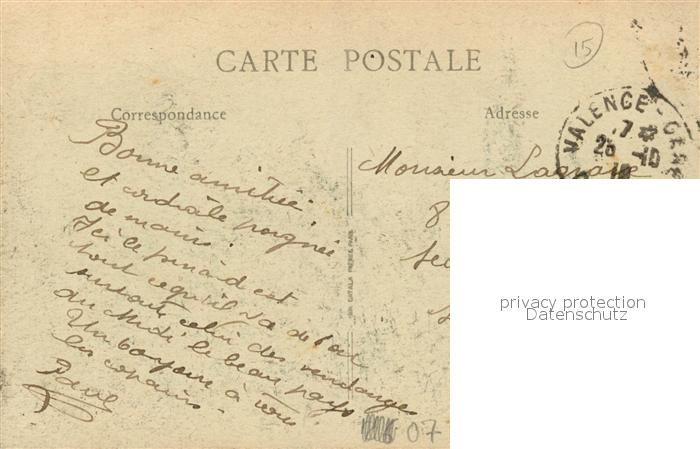 15
CARTE POSTALE
Correspondance
Adresse
VALENCE - GARE
7
26 -10
Bonne amitié
et cordiale poignée
de mains.
Ici le pinard est
tout ce qu'il y a de bon
surtout celui des vendanges
du Midi le beau pays
Un bonjour à tous
les copains.
Paul
Monsieur
8
privacy protection
Datenschutz
07